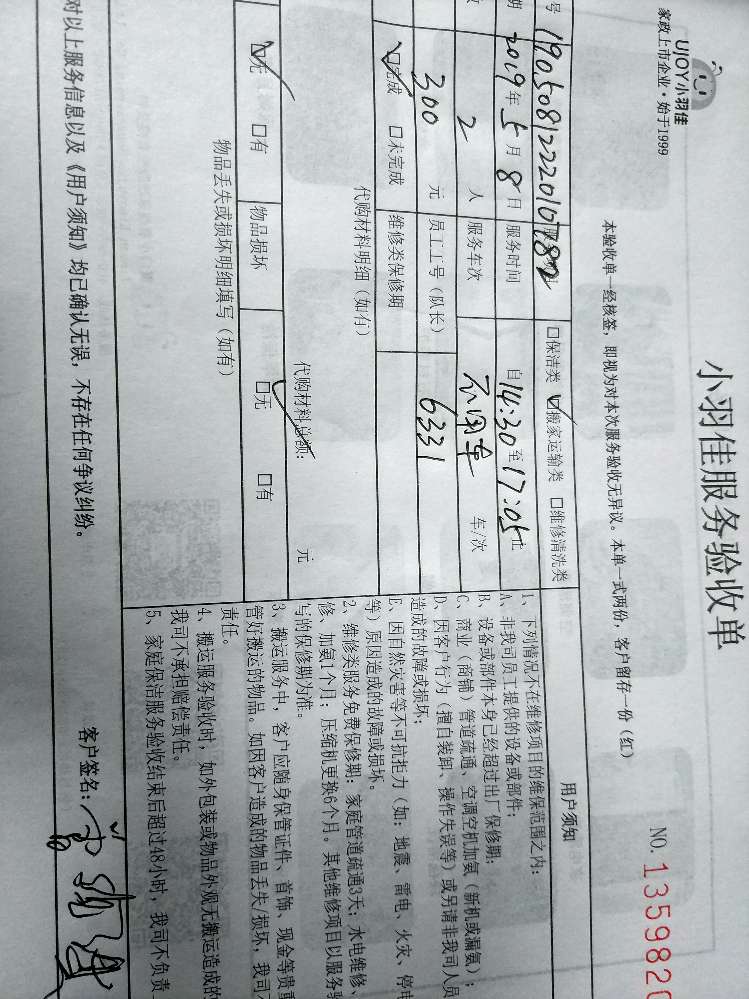 UJOY小羽佳
家政上市企业·始于1999
小羽佳服务验收单
NO. 1359820
本验收单一经核签，即视为对本次服务验收无异议。本单一式两份，客户留存一份（红）
号 190508122201078
□保洁类 ☑搬家运输类 □维修清洗类
期 2019年5月8日 服务时间 自14:30至17:05止
2 人 服务车次 车/次
300 元 员工工号（队长） 6331
☑完成 □未完成 维修类保修期
代购材料明细（如有）
代购材料总额： 元
☑无 □有 物品损坏 ☑无 □有
物品丢失或损坏明细填写（如有）
用户须知
1、下列情况不在维修项目的维保范围之内：
A、非我司员工提供的设备或部件；
B、设备或部件本身已经超过出厂保修期；
C、商业（商铺）管道疏通、空调空机加氨（新机或漏氨）；
D、因客户行为（擅自装卸、操作失误等）或另请非我司人员
造成的故障或损坏；
E、因自然灾害等不可抗拒力（如：地震、雷电、火灾、停电
等）原因造成的故障或损坏。
2、维修类服务免费保修期：家庭管道疏通3天；水电维修、
修、加氨1个月；压缩机更换6个月。其他维修项目以服务验
写的保修期为准。
3、搬运服务中，客户应随身保管证件、首饰、现金等贵重
管好搬运的物品。如因客户造成的物品丢失/损坏，我司不
责任。
4、搬运服务验收时，如外包装或物品外观无搬运造成的
我司不承担赔偿责任。
5、家庭保洁服务验收结束后超过48小时，我司不负责
对以上服务信息以及《用户须知》均已确认无误，不存在任何争议纠纷。
客户签名：